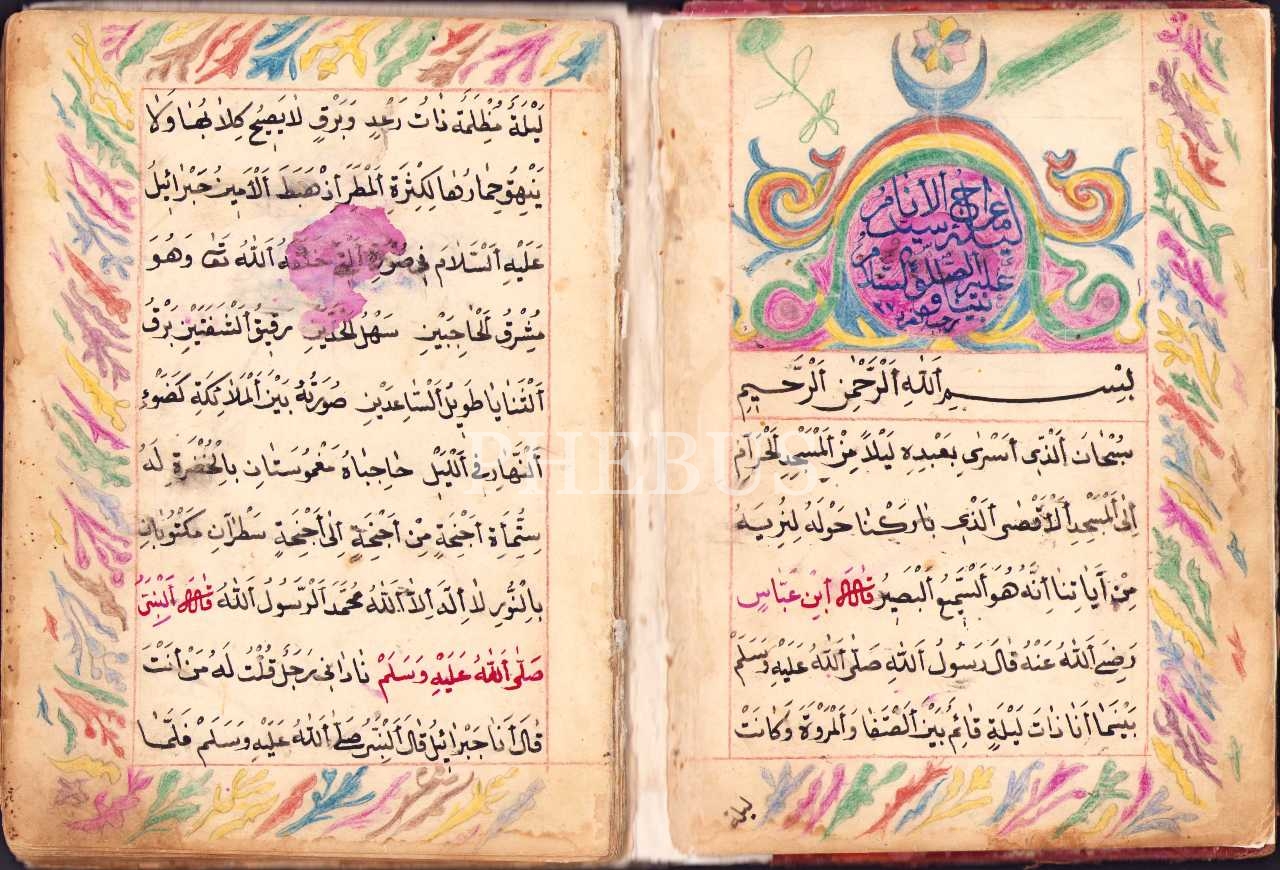 ليلة معراج الأنام
سيد
عليه الصلاة والسلام
نبينا و
بِسْمِ اَللهِ اَلرَّحْمٰنِ اَلرَّحِيمِ
سُبْحَانَ اَلَّذِي اَسْرٰى بِعَبْدِهِ لَيْلًا مِنَ اَلْمَسْجِدِ اَلْحَرَامِ
اِلَى اَلْمَسْجِدِ اَلْأَقْصَى اَلَّذِي بَارَكْنَا حَوْلَهُ لِنُرِيَهُ
مِنْ اٰيَاتِنَا اِنَّهُ هُوَ اَلسَّمِيعُ اَلْبَصِيرُ قَالَ اَبْنِ عَبَّاسٍ
رَضِيَ اَللهُ عَنْهُ قَالَ رَسُولُ اَللهِ صَلَّى اَللهُ عَلَيْهِ وَسَلَّمْ
بَيْنَمَا اَنَا ذَاتَ لَيْلَةٍ قَائِمٌ بَيْنَ اَلصَّفَا وَاَلْمَرْوَةَ وَكَانَتْ
ليلة
لَيْلَةً مُظْلِمَةً ذَاتُ رَعْدٍ وَبَرْقٍ لَا يَصِيحُ كِلَابُهَا وَلَا
يَنْهِقُ حِمَارُهَا لِكِثْرَةِ اَلْمَطَرِ اِذْ هَبَطَ اَلْأَمِينُ جَبْرَائِيلُ
عَلَيْهِ اَلسَّلَامَ فِي صُورَةِ اَلَّتِي خَلَقَهُ اَللهُ تَعَالَى وَهُوَ
مُشْرِقُ اَلْحَاجِبَيْنِ سَهْلُ اَلْخَدَّيْنِ رَقِيقُ اَلشَّفَتَيْنِ بَرْقُ
اَلثَّنَايَا طَوِيلُ اَلسَّاعِدَيْنِ صُورَتُهُ بَيْنَ اَلْمَلَائِكَةِ كَضَوْءِ
اَلنَّهَارِ فِي اَللَّيْلِ حَاجِبَاهُ مَغْمُوسَتَانِ بِالْخُضْرَةِ لَهُ
سِتُّمِأَةِ اَجْنِحَةٍ مِنْ اَجْنِحَةٍ اِلَى اَجْنِحَةٍ سَطْرَانِ مَكْتُوبَانِ
بِالنُّورِ لَا اِلٰهَ اِلَّا اَللهُ مُحَمَّدَ اَلرَّسُولُ اَللهُ قَالَ اَلنَّبِيُّ
صَلَّى اَللهُ عَلَيْهِ وَسَلَمْ نَادَانِي رَجُلٌ قُلْتُ لَهُ مَنْ اَنْتَ
قَالَ اَنَا جَبْرَائِيلُ قَالَ اَلنَّبِيُّ صَلَّى اَللهُ عَلَيْهِ وَسَلَمْ فَلَمَّا
PHEBUS